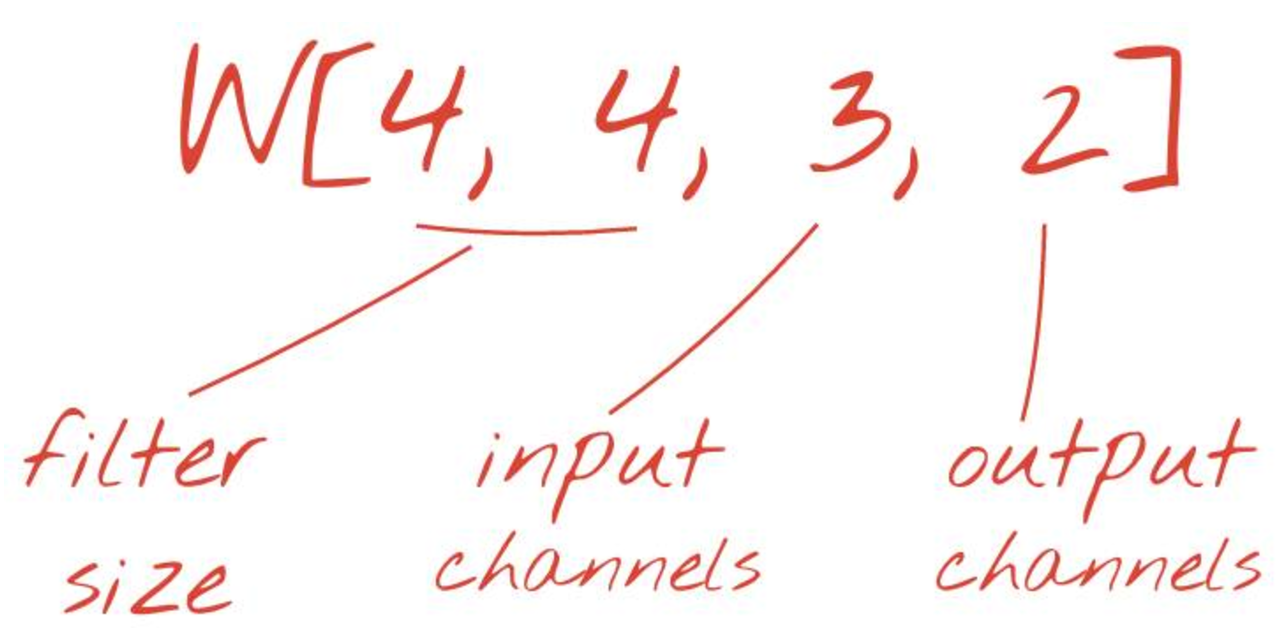 W[4, 4, 3, 2]
filter
size
input
channels
output
channels